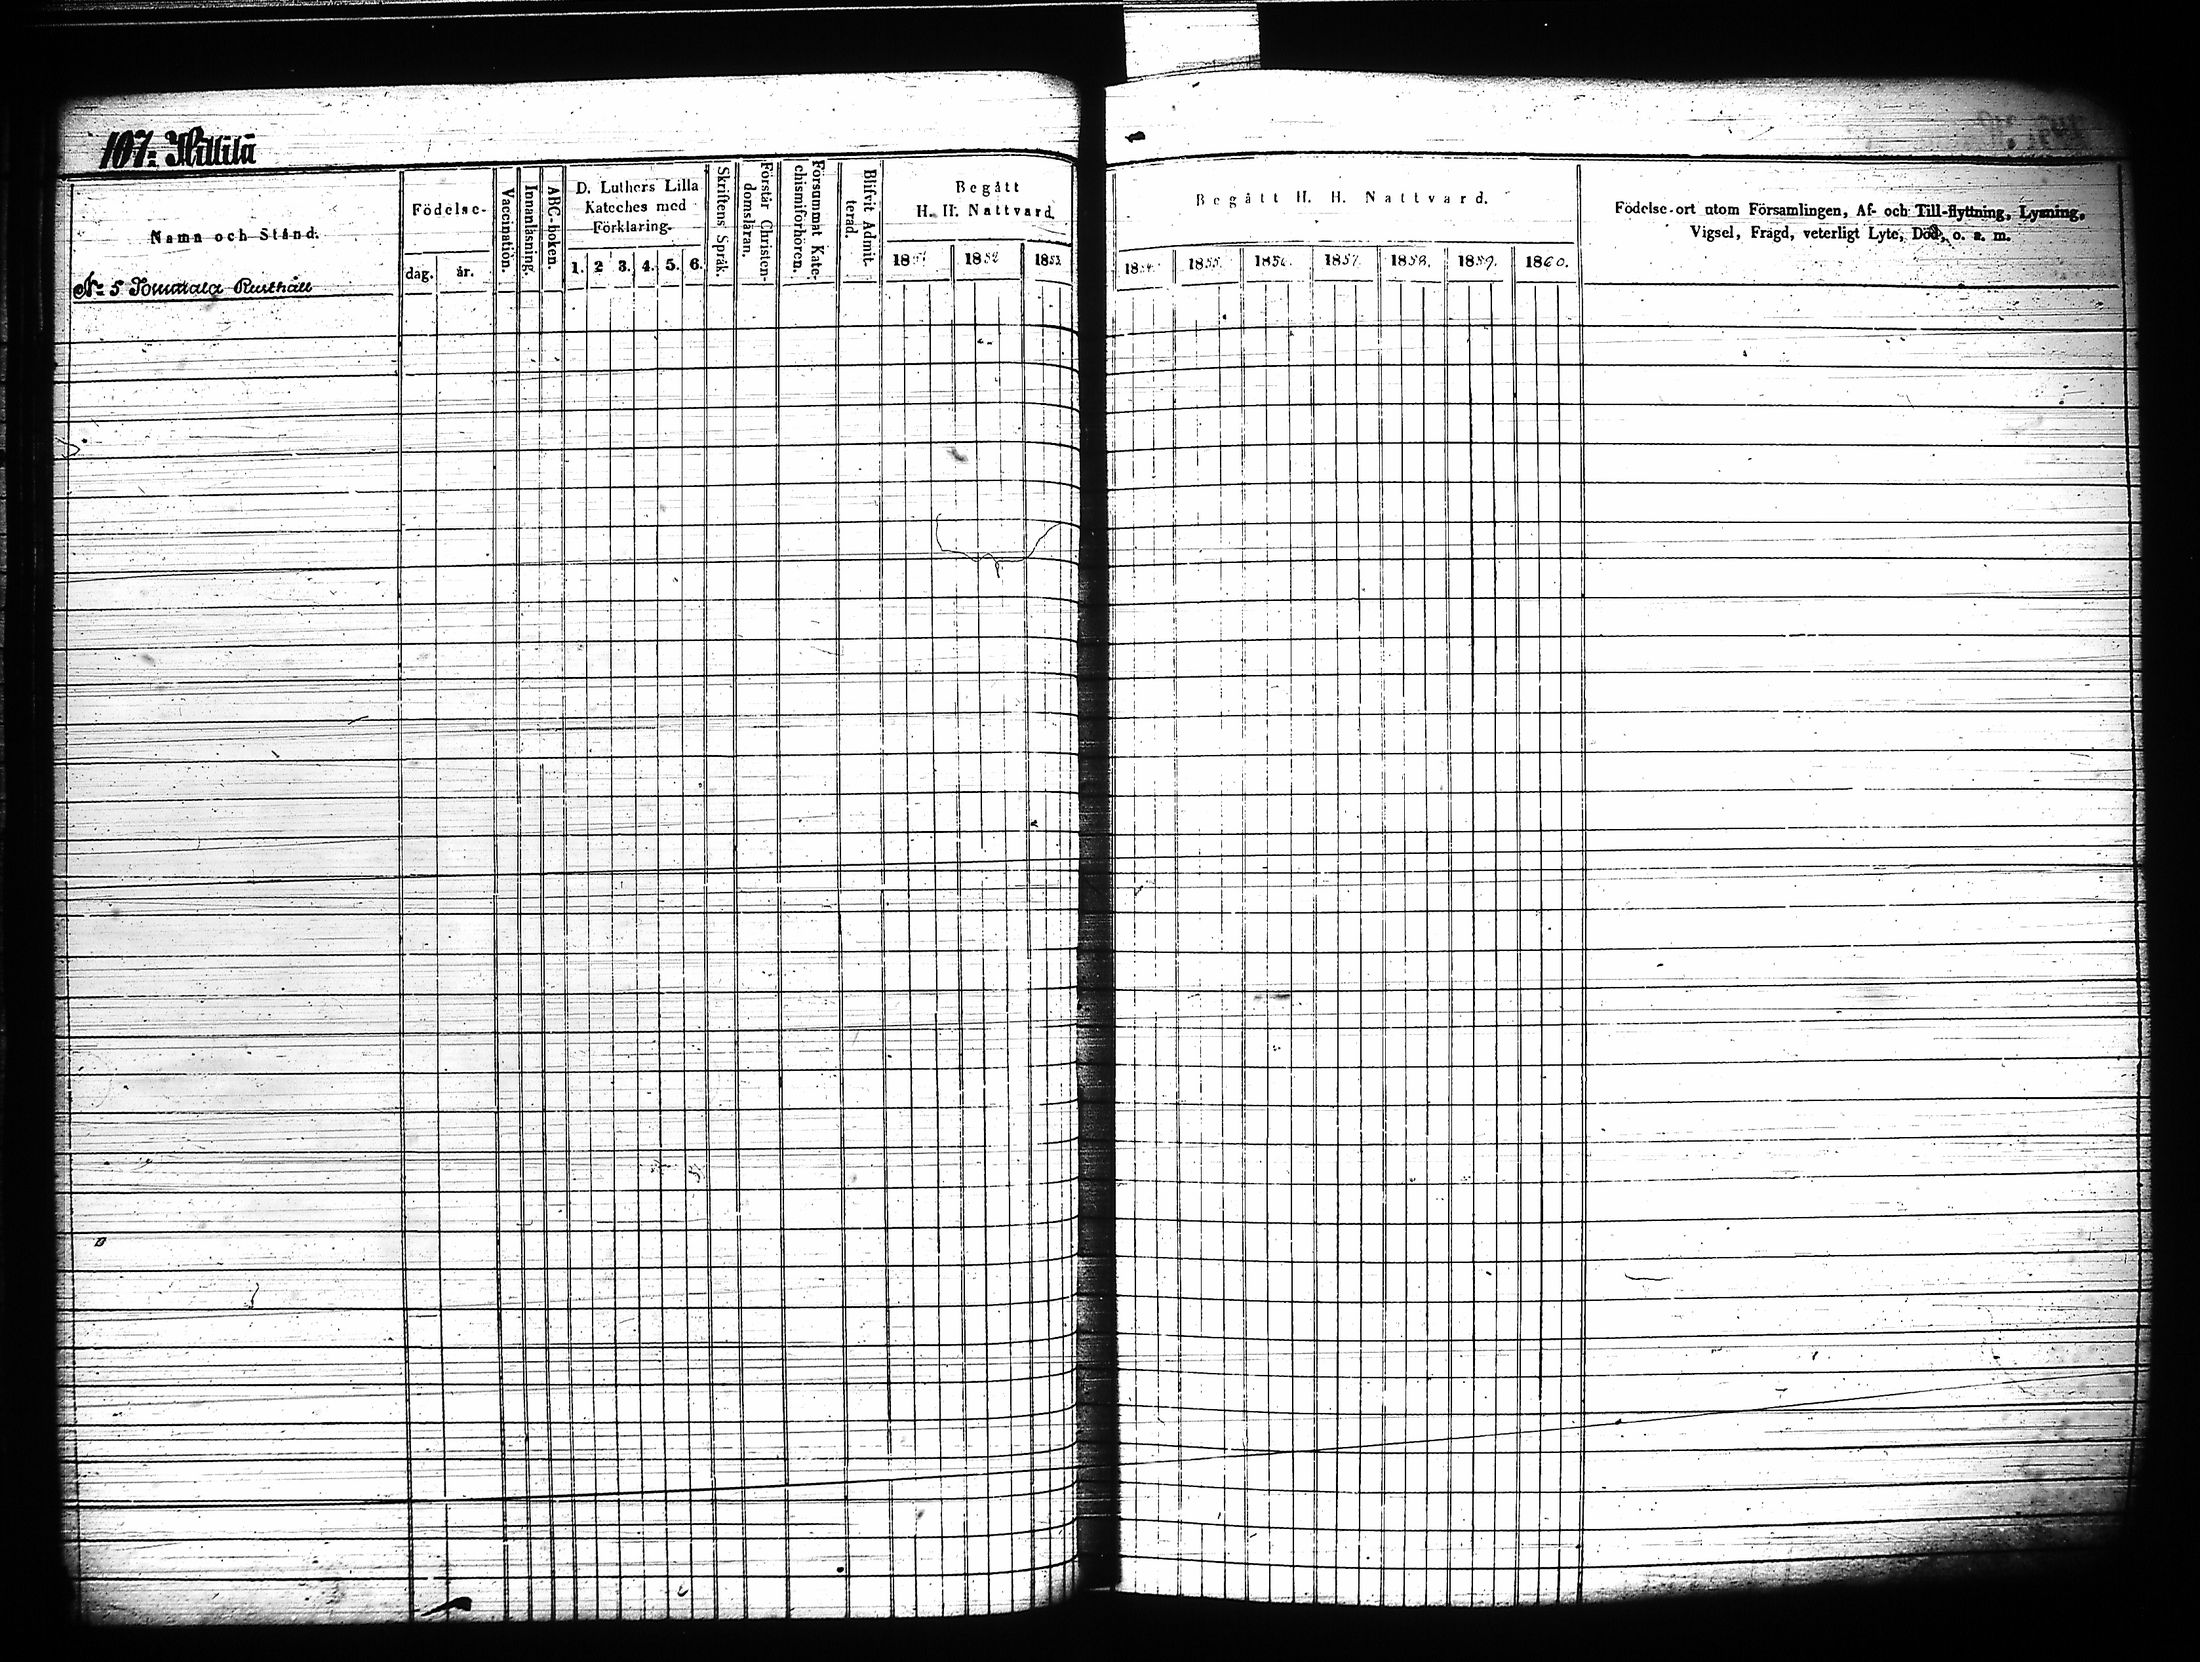 107. Hillilä
Namn och Stånd.
Födelse-
dag.
år.
Vaccination.
Innanläsning.
ABC-boken.
D. Luthers Lilla
Kateches med
Förklaring.
1. 2 3. 4. 5. 6.
Skriftens Språk.
Förstår Christen-
domsläran.
Försummat Kate-
chismiförhören.
Blifvit Admit-
terad.
Begått
H. H. Nattvard.
1851 1852 1853
№ 5
Begått H. H. Nattvard.
1854. 1855. 1856. 1857. 1858. 1859. 1860.
Födelse-ort utom Församlingen, Af- och Till-flyttning, Lysning,
Vigsel, Frägd, veterligt Lyte, Död, o. s. m.